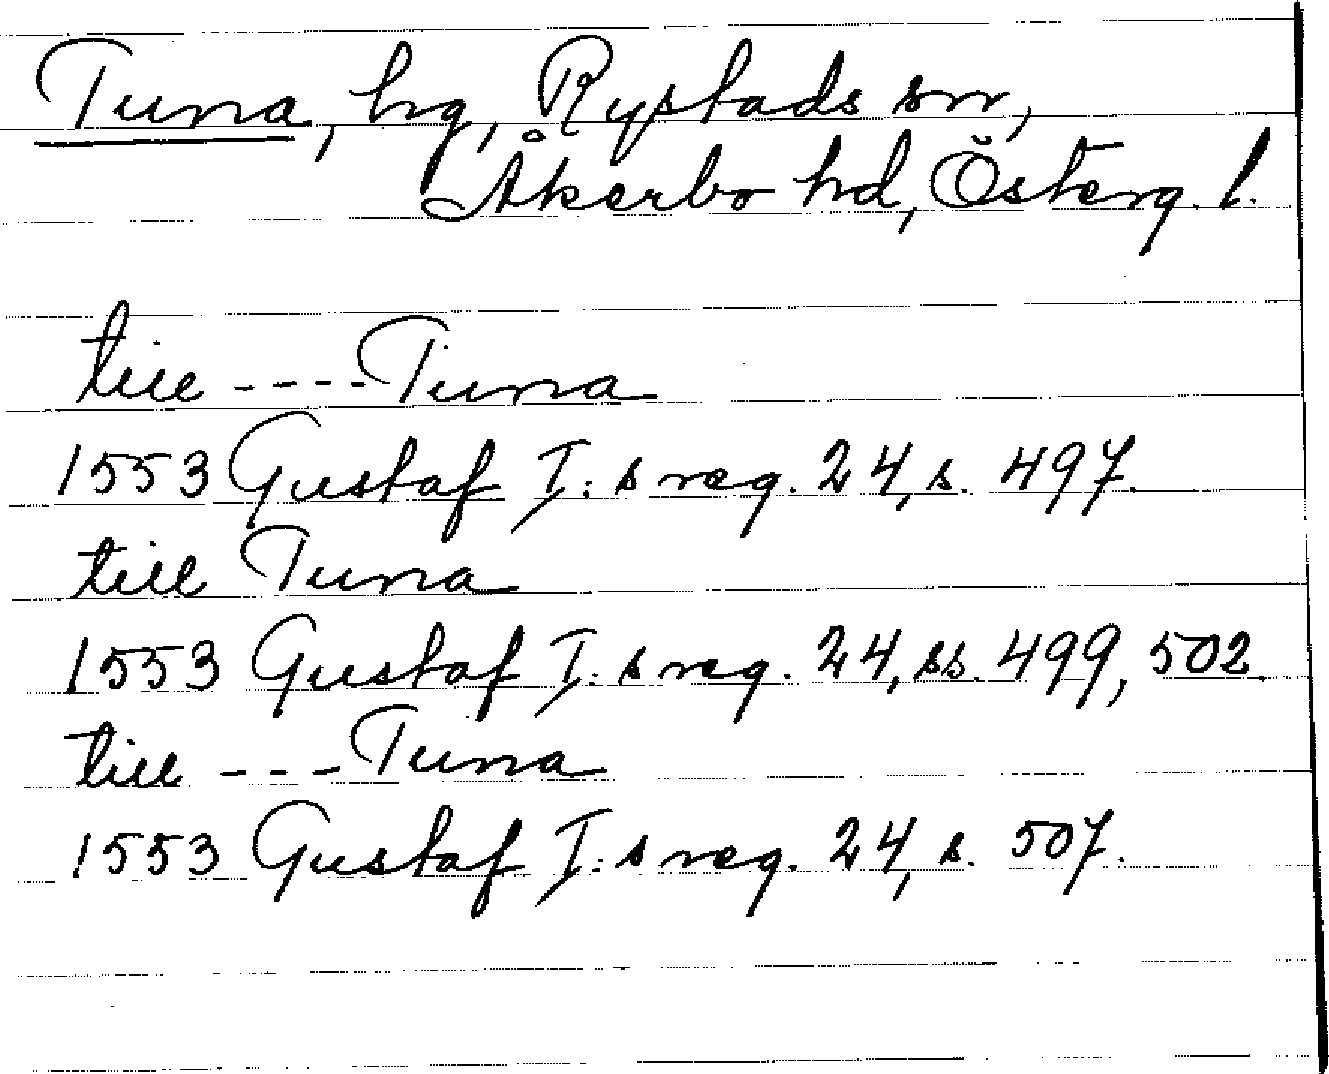 Tuna, hg, Rystads sn,
Åkerbo hd, Österg. l.
till ---- Tuna
1553 Gustaf I:s reg. 24, s. 497.
till Tuna
1553 Gustaf I:s reg. 24, ss. 499, 502.
till --- Tuna
1553 Gustaf I:s reg. 24, s. 507.